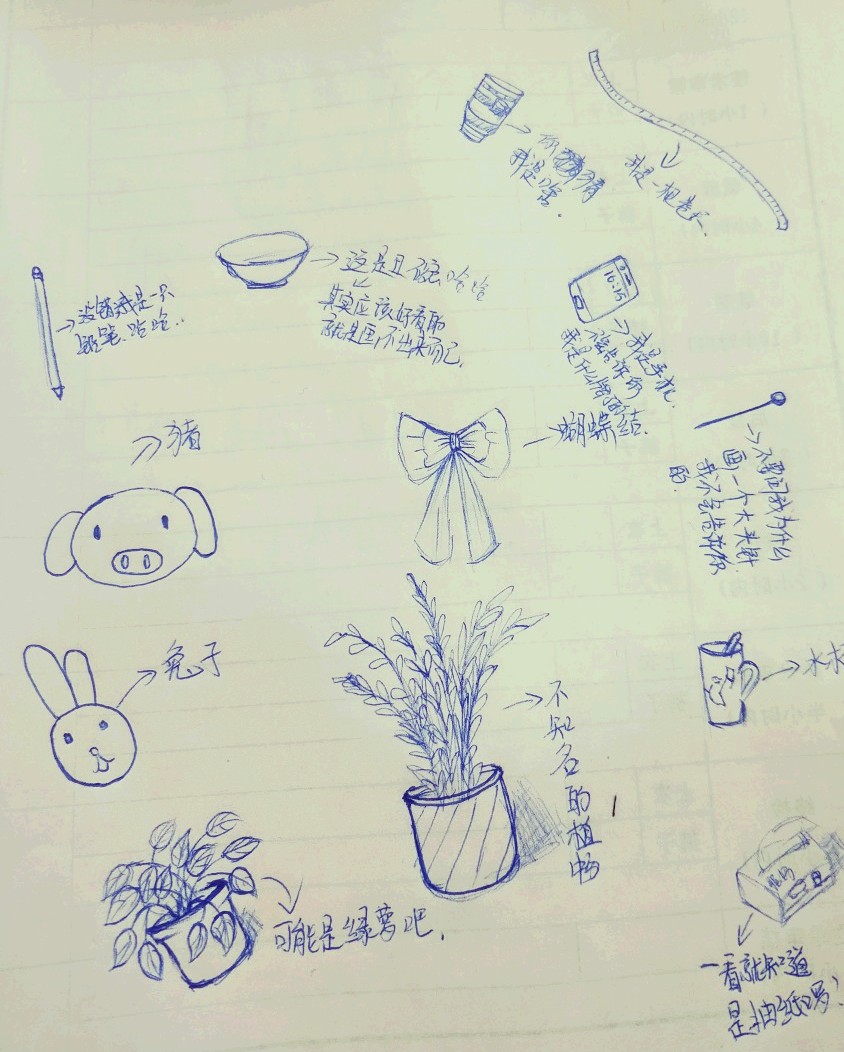 你猜猜
我是啥.
我是一根卷尺.
这是且碗.哈哈
其实应该好看的
就是画不出来而已.
没错我是一只
铅笔.哈哈..
10:15
我是手机.
猪
蝴蝶结.
不要问我为什么
画一个大头针
我不会告诉你
的.
兔子
水杯
不知名的植物
可能是绿萝吧.
一看就知道
是抽纸啰!